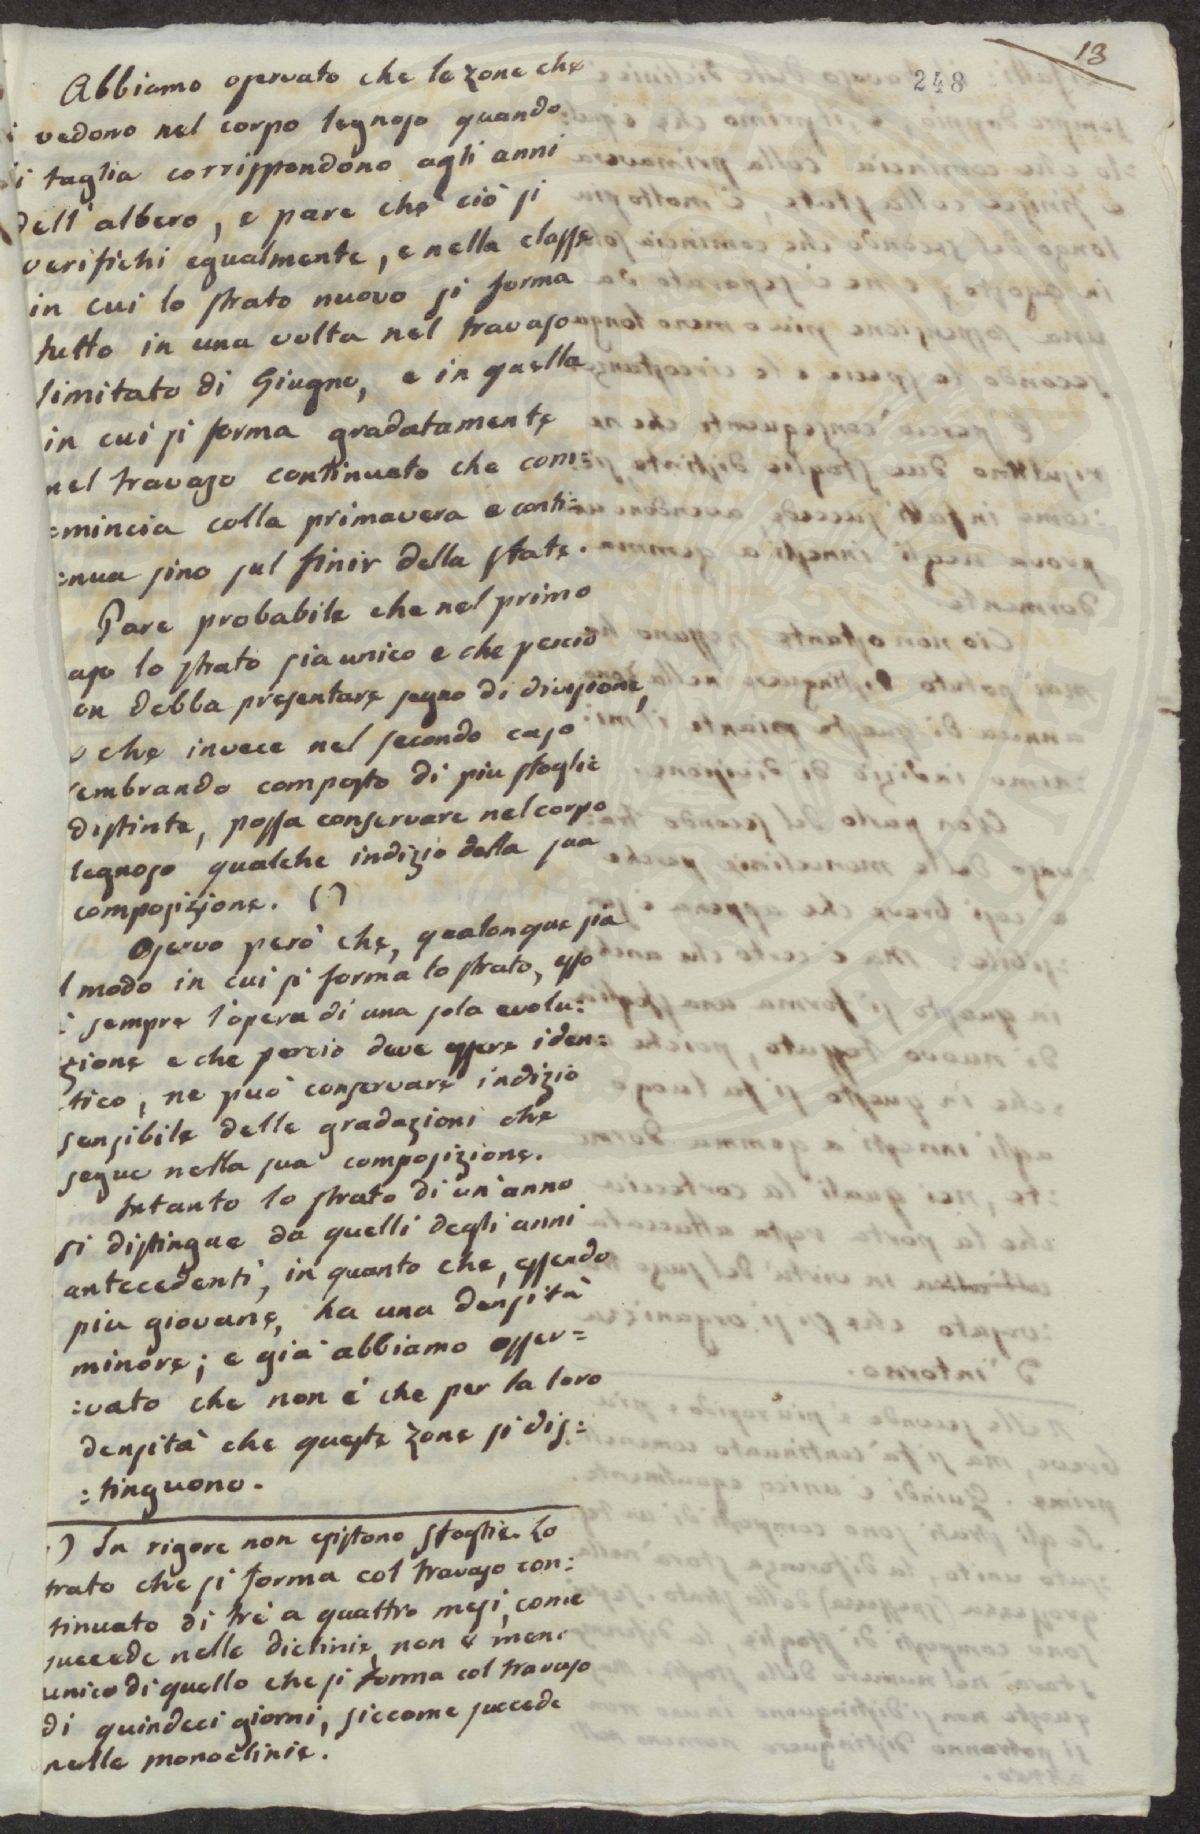 13
248
Abbiamo osservato che le zone che
i vedono nel corpo legnoso quando
i taglia corrispondono agli anni
dell'albero, e pare che ciò si
verifichi egualmente, e nella classe
in cui lo strato nuovo si forma
tutto in una volta nel travaso
limitato di Giugno, e in quella
in cui si forma gradatamente
nel travaso continuato che com:
:mincia colla primavera e conti:
:nua sino sul finir della state.
Pare probabile che nel primo
aso lo strato sia unico e che perciò
on debba presentare segno di divisione,
o che invece nel secondo caso
sembrando composto di più sfoglie
distinte, possa conservare nel corpo
legnoso qualche indizio della sua
composizione. ( )
Osservo però che, qualonque sia
l modo in cui si forma lo strato, esso
è sempre l'opera di una sola evolu:
zione e che perciò deve essere iden:
:tico, ne può conservare indizio
sensibile delle gradazioni che
segue nella sua composizione.
Intanto lo strato di un'anno
si distingue da quelli degli anni
antecedenti, in quanto che, essendo
più giovane, ha una densità
minore; e già abbiamo osser=
:vato che non è che per la loro
densità che queste zone si dis:
:tinguono.
) In rigore non esistono sfoglie. Lo
trato che si forma col travaso con:
tinuato di tre a quattro mesi, come
succede nelle diclinie, non è men
unico di quello che si forma col travaso
di quindeci giorni, siccome succede
nelle monoclinie.